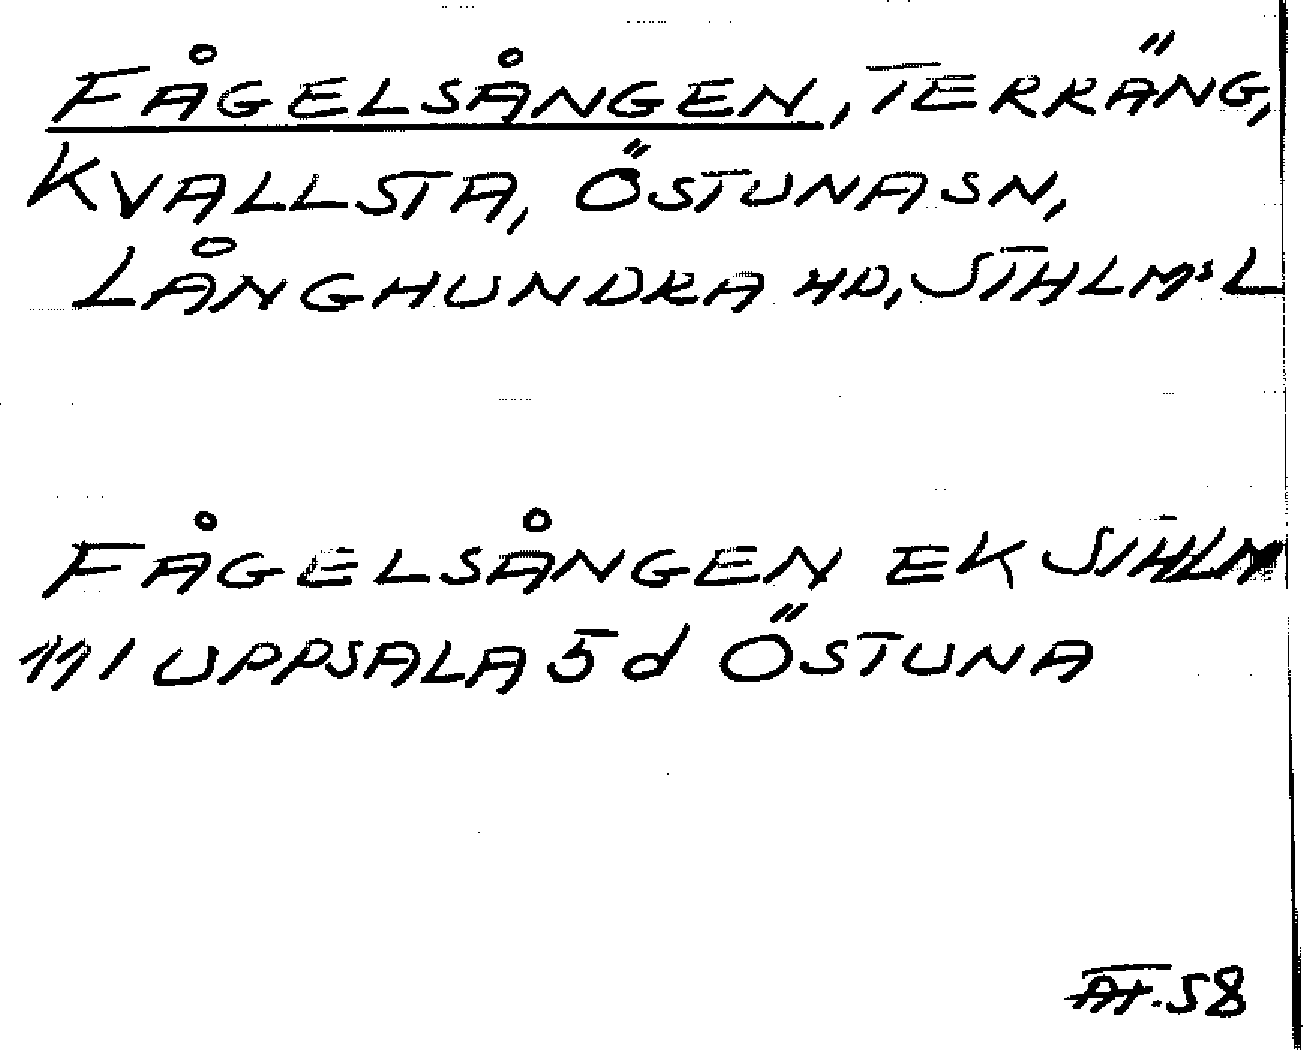 FÅGELSÅNGEN, TERRÄNG,
KVALLSTA, ÖSTUNASN,
LÅNGHUNDRA HD, STHLMˢ L
FÅGELSÅNGEN EK STHLM
111 UPPSALA 5d ÖSTUNA
58